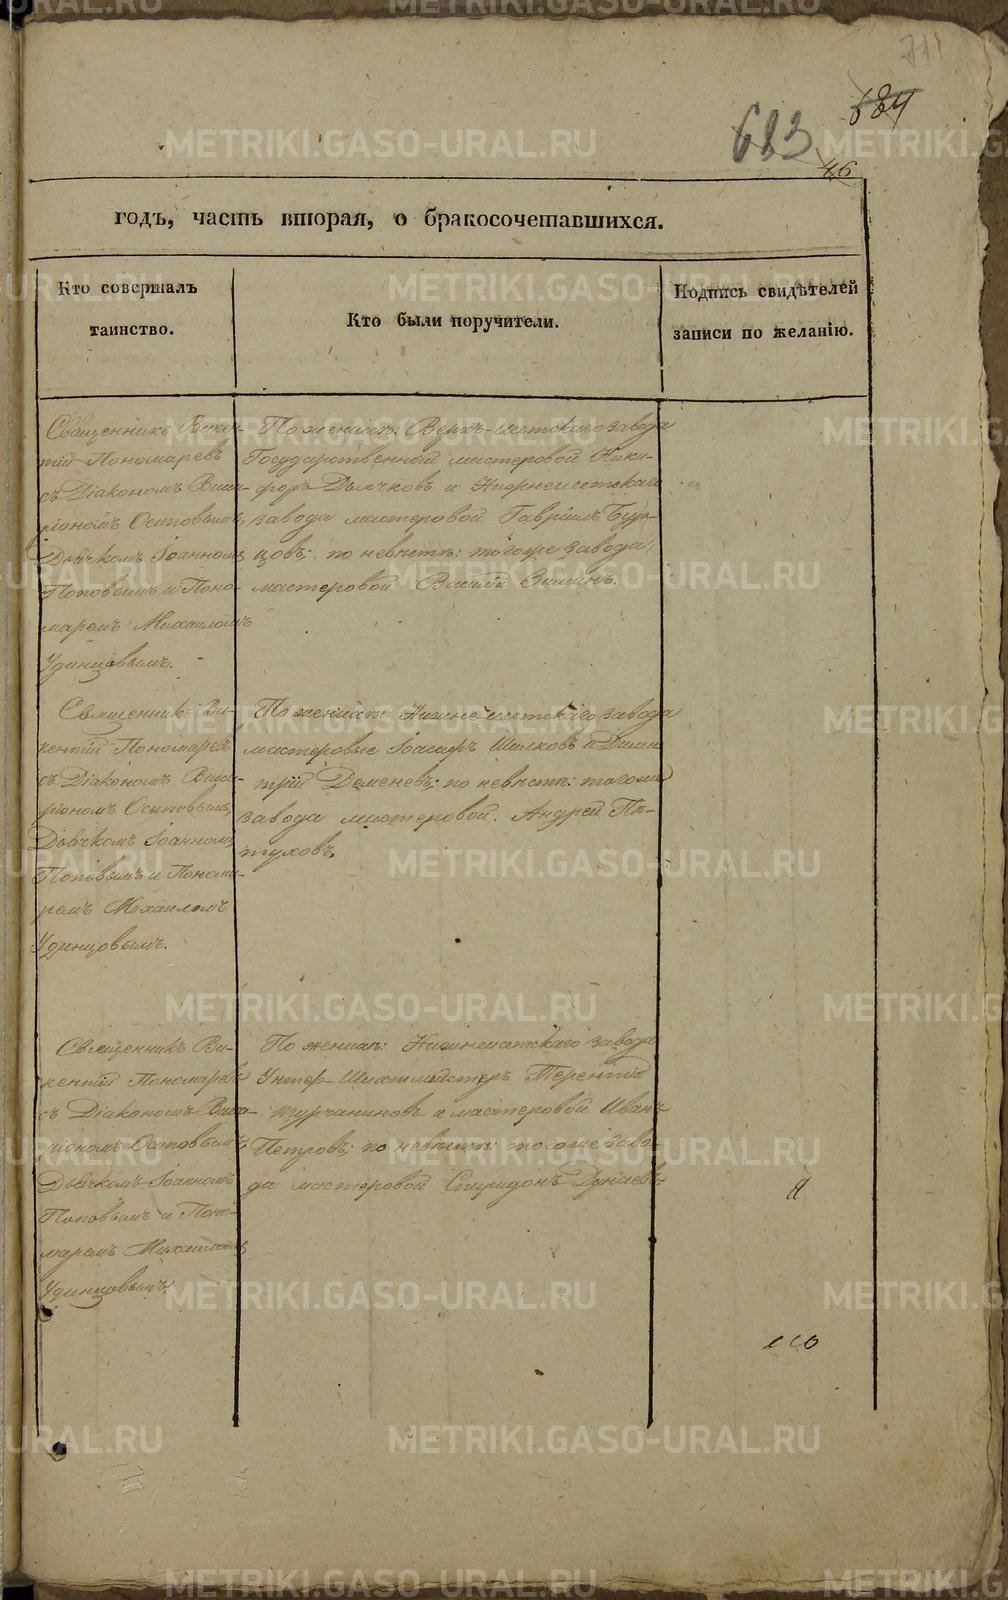 684
683
46
годъ, часть вторая, о бракосочетавшихся.
Кто совершалъ
таинство.
Кто были поручители.
Подпись свидѣтелей
записи по желанію.
Священникъ Викен-
тій Пономаревъ
съ Діакономъ Вис-
ріономъ Осиповымъ,
Дьячкомъ Іоанномъ
Поповымъ и Поно-
маремъ Михаиломъ
Удинцовымъ.
По женихѣ: Верхъ-исетскаго завода
Государственный мастеровой Ники-
форъ Дьячковъ и Нижнеисетскаго
завода мастеровой Гавріилъ Бур-
цовъ; по невѣстѣ: тогоже завода
мастеровой Василій Зиминъ.
Священникъ Ви-
кентій Пономаревъ
съ Діакономъ Виса-
ріономъ Осиповымъ,
Дьячкомъ Іоанномъ
Поповымъ и Понома-
ремъ Михаиломъ
Удинцовымъ.
По женихѣ: Нижнеисетскаго завода
мастеровые Іоасафъ Шилковъ и Дими
трій Деменевъ; по невѣстѣ: тогоже
завода мастеровой Андрей Пѣ-
туховъ.
Священникъ Ви-
кентій Пономаревъ
съ Діакономъ Виса-
ріономъ Осиповымъ
Дьячкомъ Іоанномъ
Поповымъ и Поно-
маремъ Михаиломъ
Удинцовымъ.
По женихѣ: Нижнеисетскаго завода
Унтер-Шихтмейстеръ Терентій
Турчаниновъ и мастеровой Иванъ
Петровъ; по невѣстѣ: тогоже заво-
да мастеровой Спиридонъ Дунаевъ.
METRIKI.GASO-URAL.RU